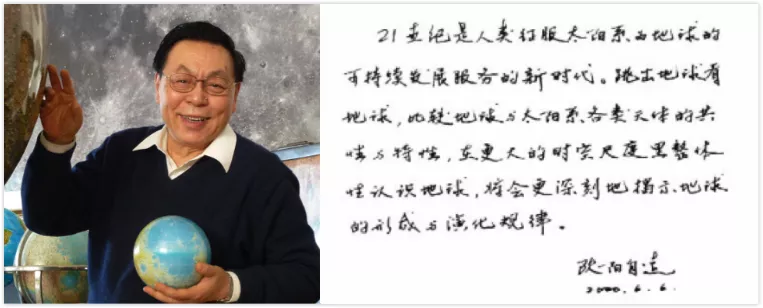 21世纪是人类征服太阳系为地球的
可持续发展服务的新时代。跳出地球看
地球,比较地球与太阳系各类天体的共
性与特性,在更大的时空尺度里整体
性认识地球,将会更深刻地揭示地球
的形成与演化规律。
欧阳自远
2000.6.6.